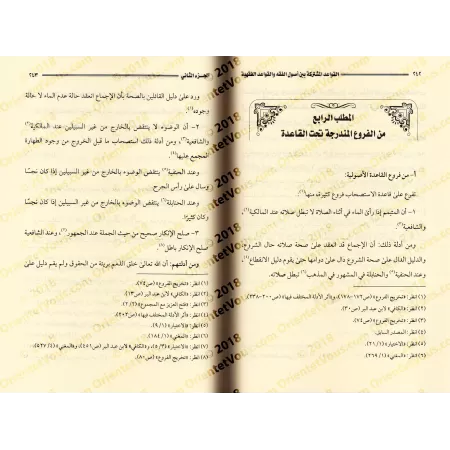 ٢٤٢ القواعد المشتركة بين أصول الفقه والقواعد الفقهية
المطلب الرابع
من الفروع المندرجة تحت القاعدة
أ- من فروع القاعدة الأصولية:
تفرع على قاعدة الاستصحاب فروع كثيرة، منها:
١- أن المتيمم إذا رأى الماء في أثناء الصلاة لا تبطل صلاته عند المالكية
والشافعية.
ومن أدلة ذلك: أن الإجماع قد انعقد على صحة صلاته حال الشروع
والدليل الدال على صحة الشروع دال على دوامها حتى يقوم دليل الانقطاع
وعند الحنفية والحنابلة في المشهور في المذهب تبطل صلاته.
(٢) انظر: «الكافي» لابن عبد البر (ص٣٠).
(٣) انظر: «تخريج الفروع» (ص٧٤).
(٤) انظر: المصدر السابق.
(٥) انظر: «الاختيار» (١/ ٢١).
(٦) انظر: «المغني» (١/ ٢٦٩).
الجزء الثاني ٢٤٣
ورد على دليل القائلين بالصحة بأن الإجماع انعقد حالة عدم الماء لا حالة
وجوده(١).
٢- أن الوضوء لا ينتقض بالخارج من غير السبيلين عند المالكية(٢)
والشافعية(٣)، ومن أدلة ذلك استصحاب ما قبل الخروج من وجود الطهارة
المجمع عليها(٤).
وعند الحنفية(٥) ينتقض الوضوء بالخارج من غير السبيلين إذا كان نجسًا
وسال على رأس الجرح.
وعند الحنابلة ينتقض الوضوء بالخارج من غير السبيلين إذا كان نجسًا
وكان كثيرًا(٦).
٣- صلح الإنكار صحيح من حيث الجملة عند الجمهور(٧)، وعند الشافعية
صلح الإنكار باطل(٨).
ومن أدلتهم: أن الله تعالى خلق الذمم بريئة من الحقوق ولم يقم دليل على
(١) انظر: «تخريج الفروع» (ص٧٤).
(٢) انظر: «الكافي» لابن عبد البر (ص١٣).
(٣) انظر: «فتح العزيز مع المجموع» (٢/ ٢).
(٥) انظر: «الاختيار» (١/ ٩).
(٦) انظر: «المغني» (١/ ١٨٤).
(٧) انظر: «الاختيار» (٣/ ٥)، و«الكافي» لابن عبد البر (ص٤٥١)، و«المغني» (٤/ ٥٢٧).
(٨) انظر: «تخريج الفروع» (ص٨١).